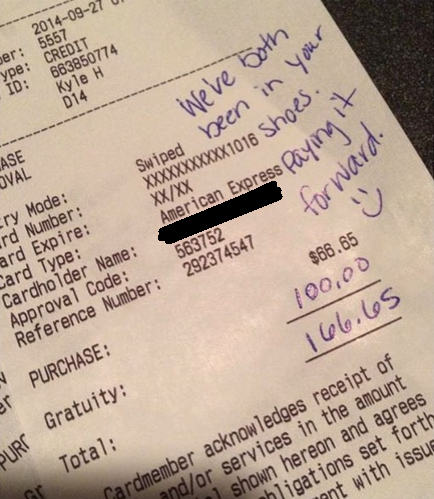 2014-09-27 0
ber: 5557
ype: CREDIT
ID: 663850774
Kyle H
D14
We've both
been in your
shoes.
Paying it
forward.
ASE
OVAL
ry Mode: Swiped
ard Number: XXXXXXXXXXX1016
ard Expire: XX/XX
Card Type: American Express
Cardholder Name:
Approval Code: 563752
Reference Number: 292374547
PURCHASE: $66.65
Gratuity: 100.00
Total: 166.65
Cardmember acknowledges receipt of
and/or services in the amount
shown hereon and agrees
obligations set forth
ent with issue